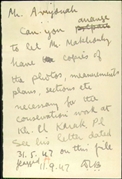 Mr. Avizonah
Can you arrange
to let Mr Makhouly
have copies of
the photos, measurements
plans, sections etc
necessary for the
conservation work at
Kh. el Kerak Pl
See his letter dated
31.5.47 on this file
11.9.47